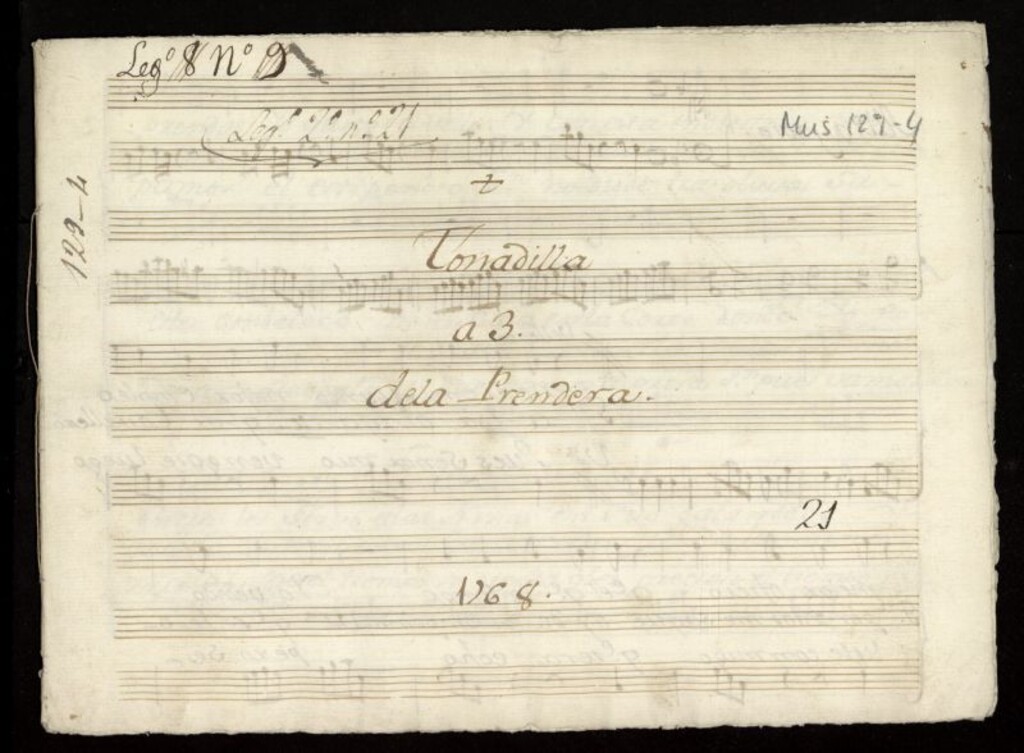 Leg.º 8 Nº 9
Leg.º 2º n.º 21
Mus 129-4
129-4
+
Tonadilla
a 3.
dela Prendera.
21
1768.